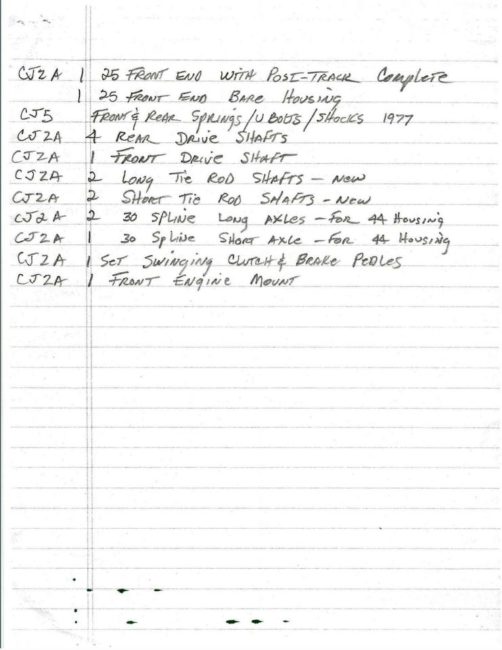 CJ2A 1 25 FRONT END WITH POSI-TRACK Complete
1 25 FRONT END BARE HOUSING
CJ5 FRONT & REAR SPRINGS/U BOLTS/SHOCKS 1977
CJ2A 4 REAR DRIVE SHAFTS
CJ2A 1 FRONT DRIVE SHAFT
CJ2A 2 LONG TIE ROD SHAFTS - NEW
CJ2A 2 SHORT TIE ROD SHAFTS - NEW
CJ2A 2 30 SPLINE LONG AXLES - FOR 44 HOUSING
CJ2A 1 30 SPLINE SHORT AXLE - FOR 44 HOUSING
CJ2A 1 SET SWINGING CLUTCH & BRAKE PEDLES
CJ2A 1 FRONT ENGINE MOUNT